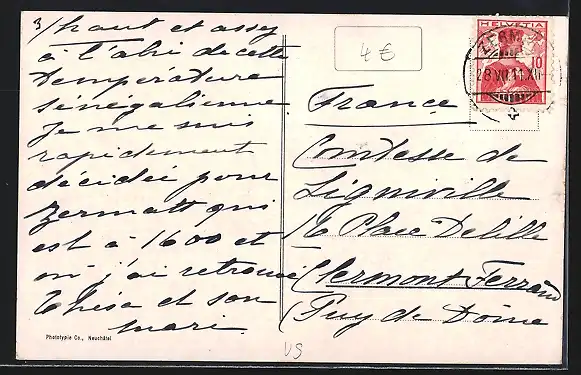 3/ haut et assez
à l'abri de cette
température
sénégalienne
Je me suis
rapidement
décidée pour
Zermatt qui
est à 1600 et
où j'ai retrouvé
Thèse et son
mari.
Phototypie Co., Neuchâtel
4 €
HELVETIA
ZERM
28 VII.11.XII
10
France
Comtesse de
Ligniville
16 Place Delille
Clermont Ferrand
Puy de Dôme
VS